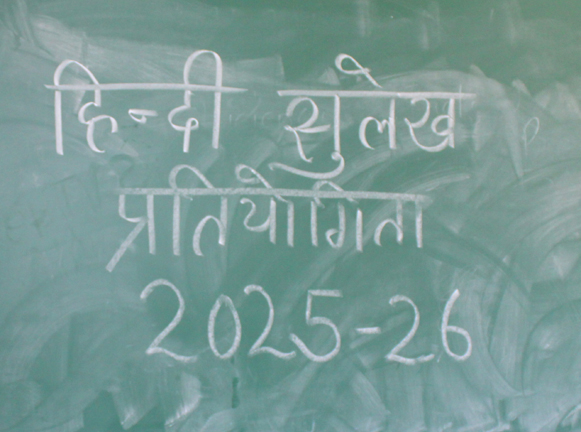 हिन्दी सुलेख
प्रतियोगिता
2025-26